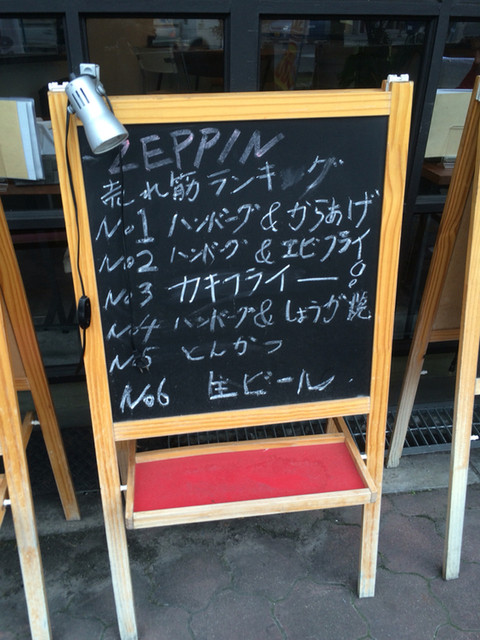 ZEPPIN
売れ筋ランキング
No1 ハンバーグ&からあげ
No2 ハンバーグ&エビフライ
No3 カキフライー!
No4 ハンバーグ&しょうが焼
No5 とんかつ
No6 生ビール